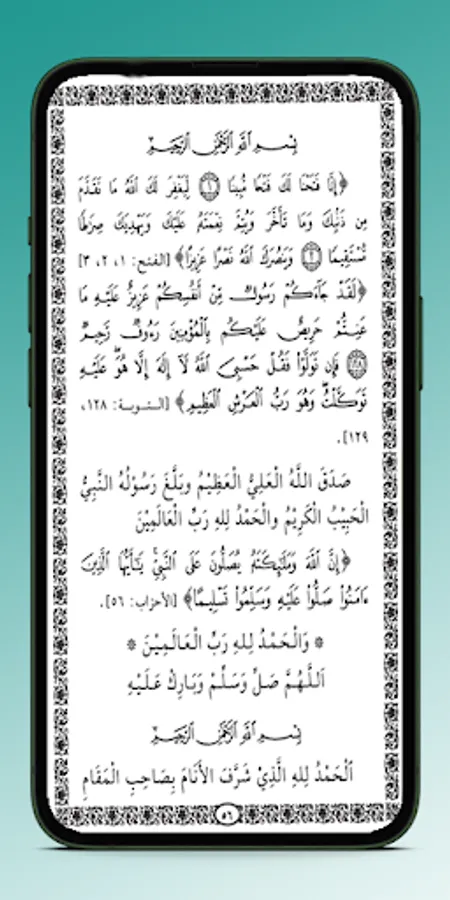 بِسْمِ اللَّهِ الرَّحْمَٰنِ الرَّحِيمِ
﴿إِنَّا فَتَحْنَا لَكَ فَتْحًا مُّبِينًا ۝١ لِّيَغْفِرَ لَكَ اللَّهُ مَا تَقَدَّمَ
مِن ذَنۢبِكَ وَمَا تَأَخَّرَ وَيُتِمَّ نِعْمَتَهُۥ عَلَيْكَ وَيَهْدِيَكَ صِرَٰطًا
مُّسْتَقِيمًا ۝٢ وَيَنصُرَكَ اللَّهُ نَصْرًا عَزِيزًا﴾ [الفتح: ١، ٢، ٣]
﴿لَقَدْ جَآءَكُمْ رَسُولٌ مِّنْ أَنفُسِكُمْ عَزِيزٌ عَلَيْهِ مَا
عَنِتُّمْ حَرِيصٌ عَلَيْكُم بِٱلْمُؤْمِنِينَ رَءُوفٌ رَّحِيمٌ
۝١٢٨ فَإِن تَوَلَّوْا۟ فَقُلْ حَسْبِىَ ٱللَّهُ لَآ إِلَٰهَ إِلَّا هُوَ ۖ عَلَيْهِ
تَوَكَّلْتُ ۖ وَهُوَ رَبُّ ٱلْعَرْشِ ٱلْعَظِيمِ﴾ [التوبة: ١٢٨،
١٢٩].
صَدَقَ اللَّهُ الْعَلِيُّ الْعَظِيْمُ وَبَلَّغَ رَسُوْلُهُ النَّبِيُّ
الْحَبِيْبُ الْكَرِيْمُ والْحَمْدُ لِلهِ رَبِّ الْعَالَمِيْنَ
﴿إِنَّ ٱللَّهَ وَمَلَٰٓئِكَتَهُۥ يُصَلُّونَ عَلَى ٱلنَّبِىِّ ۚ يَٰٓأَيُّهَا ٱلَّذِينَ
ءَامَنُوا۟ صَلُّوا۟ عَلَيْهِ وَسَلِّمُوا۟ تَسْلِيمًا﴾ [الأحزاب: ٥٦].
* وَالْحَمْدُ لِلهِ رَبِّ الْعَالَمِيْنَ *
اَللَّهُمَّ صَلِّ وَسَلِّمْ وَبَارِكْ عَلَيْهِ
بِسْمِ اللَّهِ الرَّحْمَٰنِ الرَّحِيمِ
اَلْحَمْدُ لِلهِ الَّذِيْ شَرَّفَ الأَنَامَ بِصَاحِبِ الْمَقَامِ
٥٦